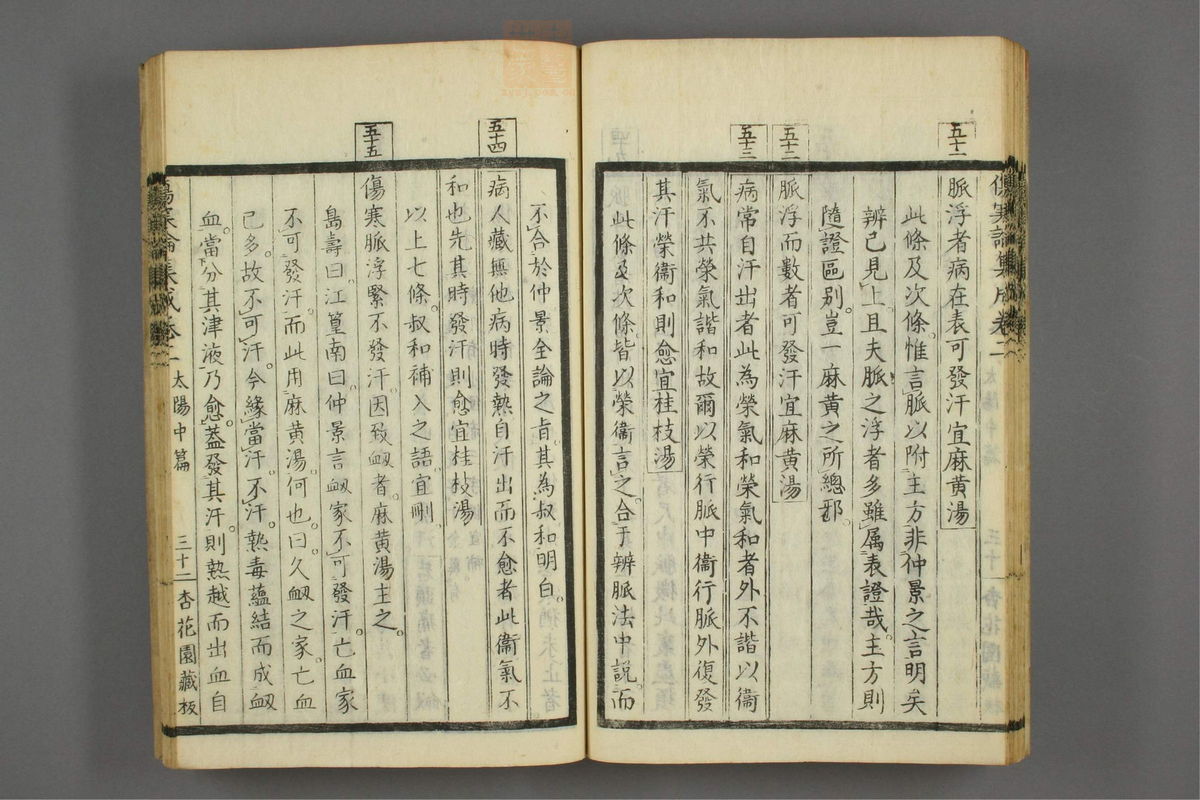 五十一
脈浮者病在表可發汗宜麻黄湯
此條及次條。惟言脈以附主方非仲景之言明矣
辨已見上且夫脈之浮者多雖属表證哉。主方則
隨證區别。豈一麻黄之所總邪。
五十二
脈浮而數者可發汗宜麻黄湯
五十三
病常自汗出者此為榮氣和榮氣和者外不諧以衞
氣不共榮氣諧和故爾以榮行脈中衞行脈外復發
其汗榮衞和則愈宜桂枝湯
此條及次條。皆以榮衞言之。合于辨脈法中說。而
不合於仲景全論之旨。其為叔和明白。
五十四
病人藏無他病時發熱自汗出而不愈者此衞氣不
和也先其時發汗則愈宜桂枝湯
以上七條。叔和補入之語。宜刪。
五十五
傷寒脈浮緊不發汗。因致衂者。麻黄湯主之。
嶌壽曰。江篁南曰。仲景言衂家不可發汗。亡血家
不可發汗。而此用麻黄湯。何也。曰。久衂之家。亡血
已多。故不可汗。今緣當汗。不汗。熱毒蘊結而成衂
血。當分其津液乃愈。蓋發其汗。則熱越而出血自
傷寒論集成卷二 太陽中篇 三十二 杏花園藏板